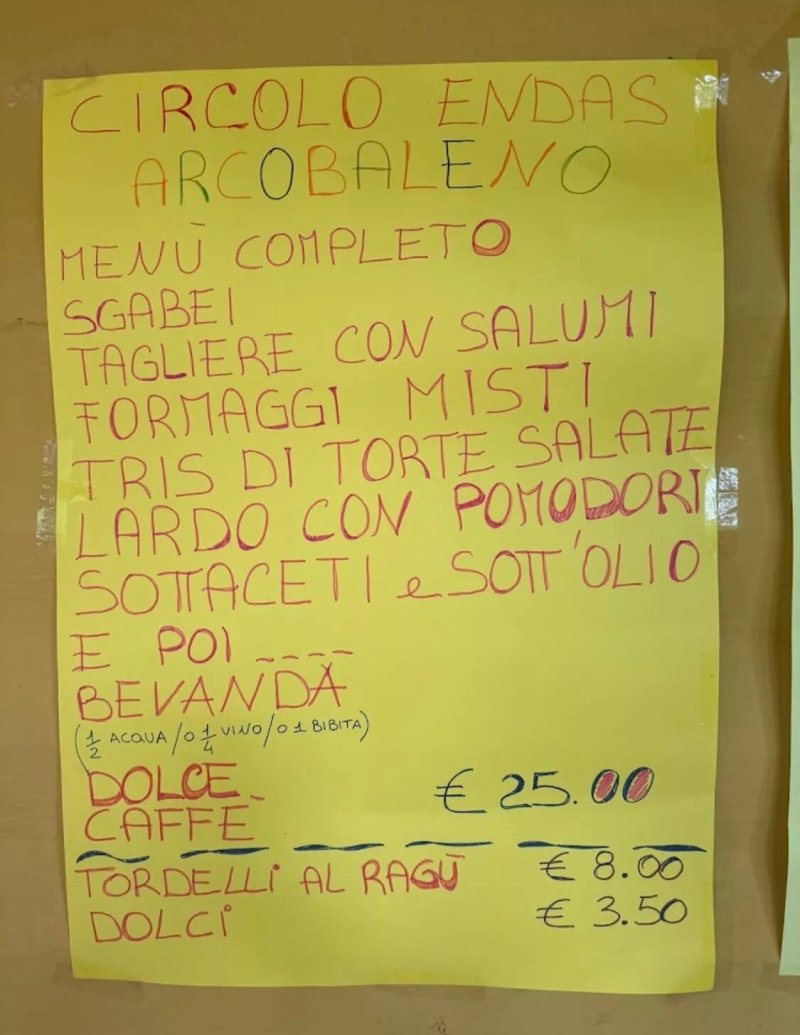 CIRCOLO ENDAS
ARCOBALENO
MENÙ COMPLETO
SGABEI
TAGLIERE CON SALUMI
FORMAGGI MISTI
TRIS DI TORTE SALATE
LARDO CON POMODORI
SOTTACETI e SOTT'OLIO
E POI ----
BEVANDA
(1/2 ACQUA/O 1/4 VINO/O 1 BIBITA)
DOLCE € 25.00
CAFFÈ
TORDELLi AL RAGÙ € 8.00
DOLCi € 3.50